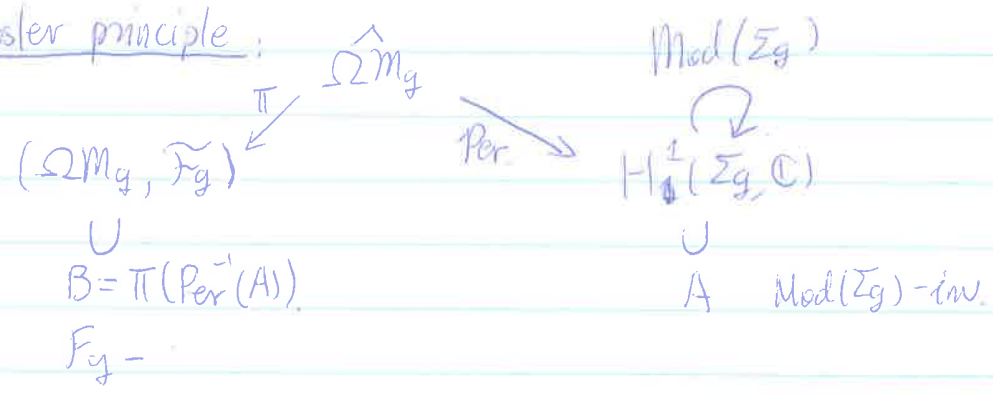 sler principle :
Ω̂M_g Mod(Σ_g)
π Per
(ΩM_g, F̃_g) H^1(Σ_g, ℂ)
∪ ∪
B = π(Per^{-1}(A)) A Mod(Σ_g)-inv.
F_g -